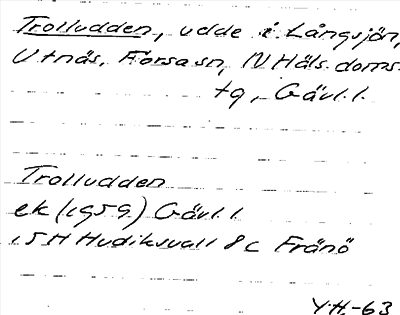 Trolludden, udde i Långsjön,
Utnäs, Forsa sn, N Häls. doms.
tg, Gävl. l.
Trolludden
ek (1959) Gävl. l.
15H Hudiksvall 8c Franö
Y.H.-63